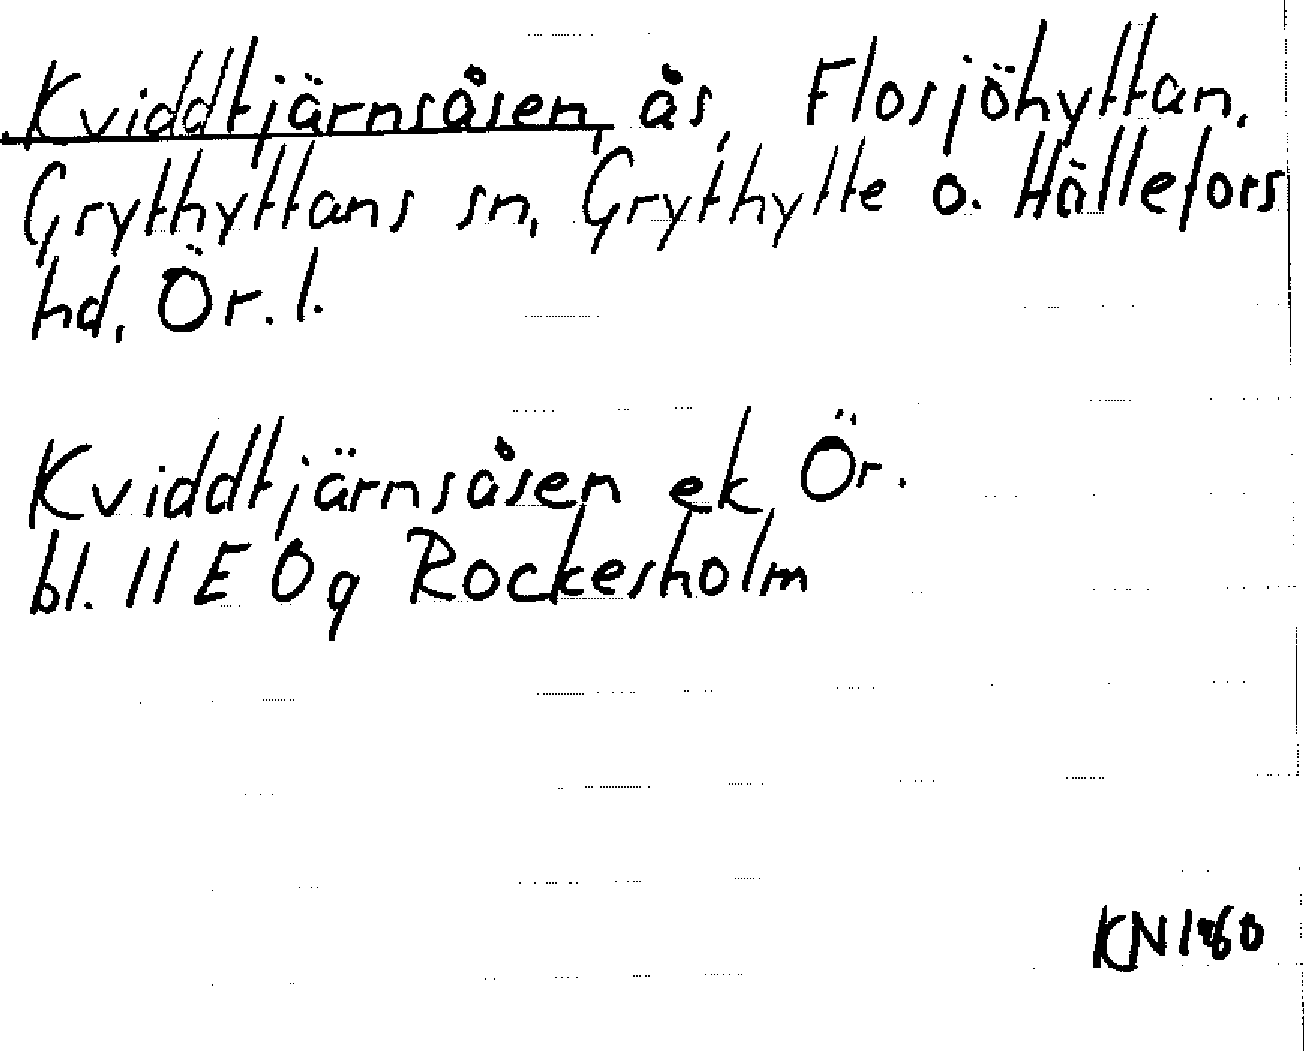 Kviddtjärnsåsen, ås, Flosjöhyttan,
Grythyttans sn, Grythytte o. Hällefors
hd, Ör. l.
Kviddtjärnsåsen ek Ör.
bl. 11 E 0 g Rockesholm
KN